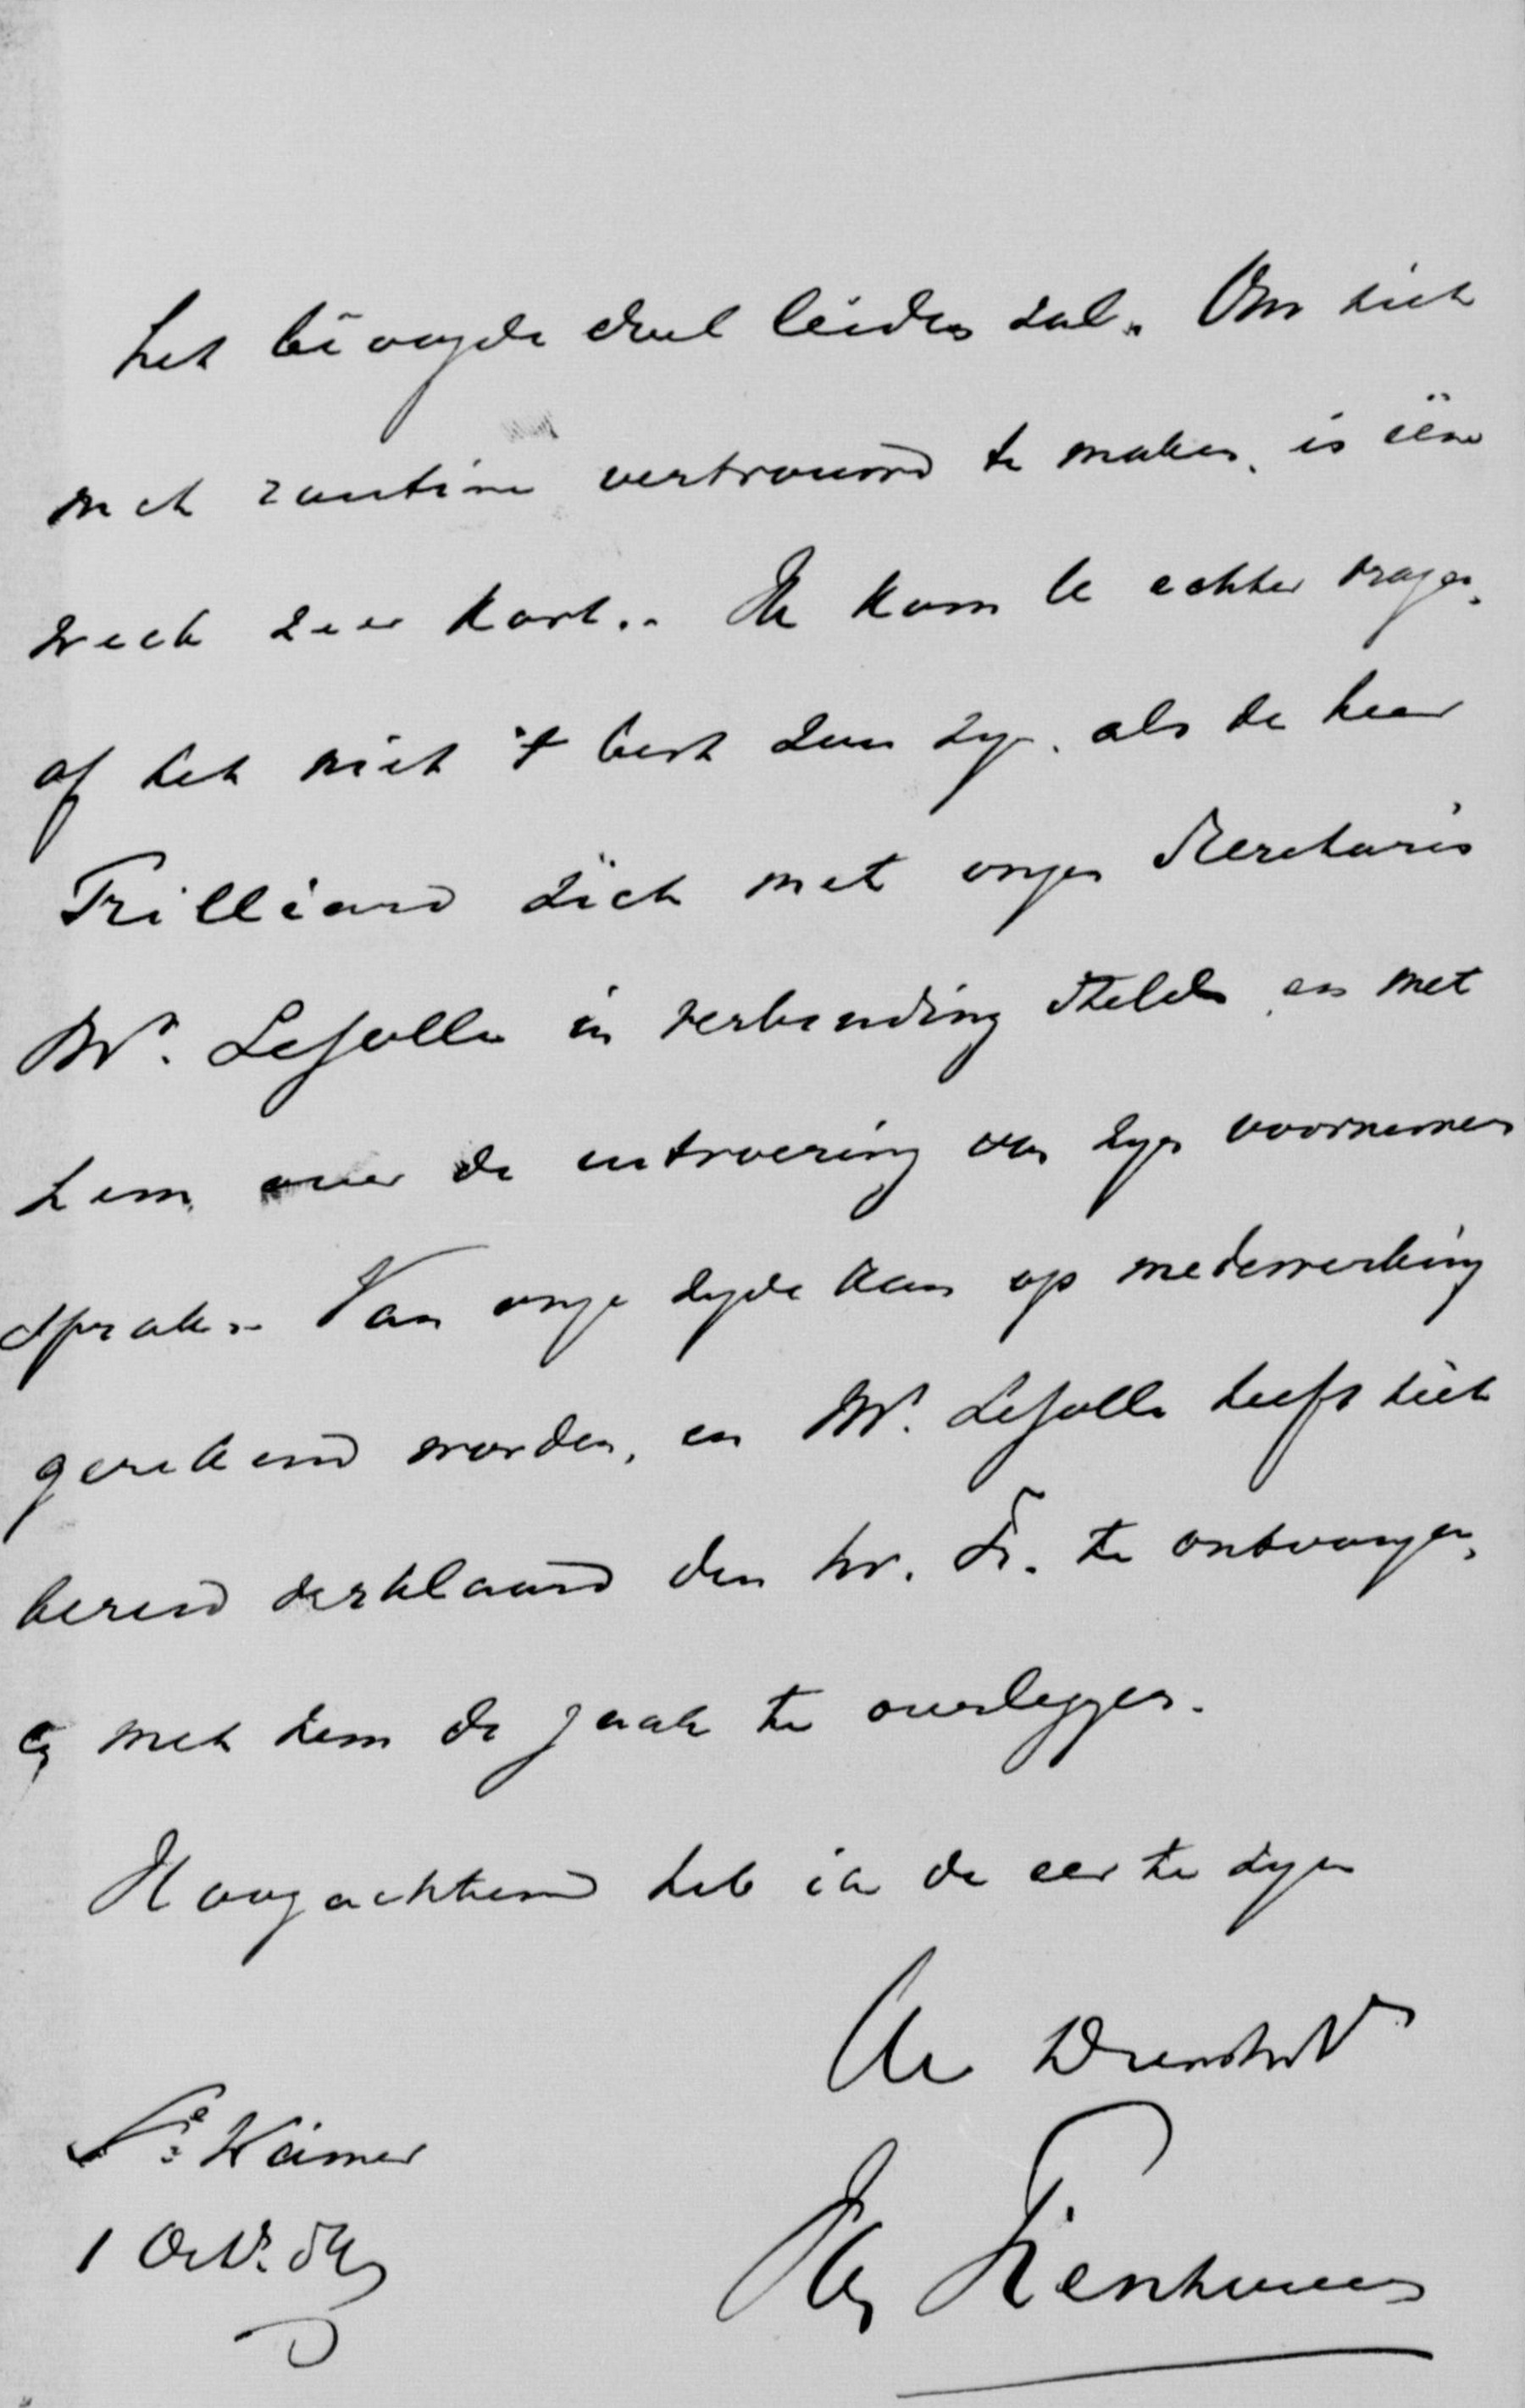 het beoogde doel leiden zal. Om zich
met routine vertrouwd te maken, is ééne
week zeer kort. Ik kom te echter vragen,
of het niet 't best zou zyn, als de heer
Trilliard zich met onzen Secretaris
Mr. LeJolle in verbinding stelde, en met
hem over de uitvoering van zyn voornemen
sprak. Van onze zyde kan op medewerking
gerekend worden, en Mr. LeJolle heeft zich
bereid verklaard den hr. Tr. te ontvangen,
en met hem de zaak te overleggen.
Hoogachtend heb ik de eer te zyn
Uw
1 Oct.
Tienhoven